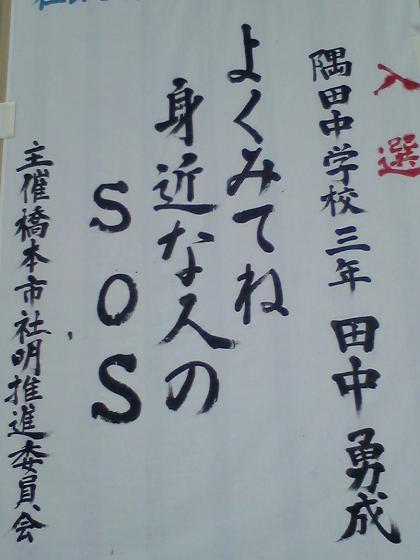 入選
隅田中学校三年 田中勇成
よくみてね
身近な人の
SOS
主催橋本市社明推進委員会